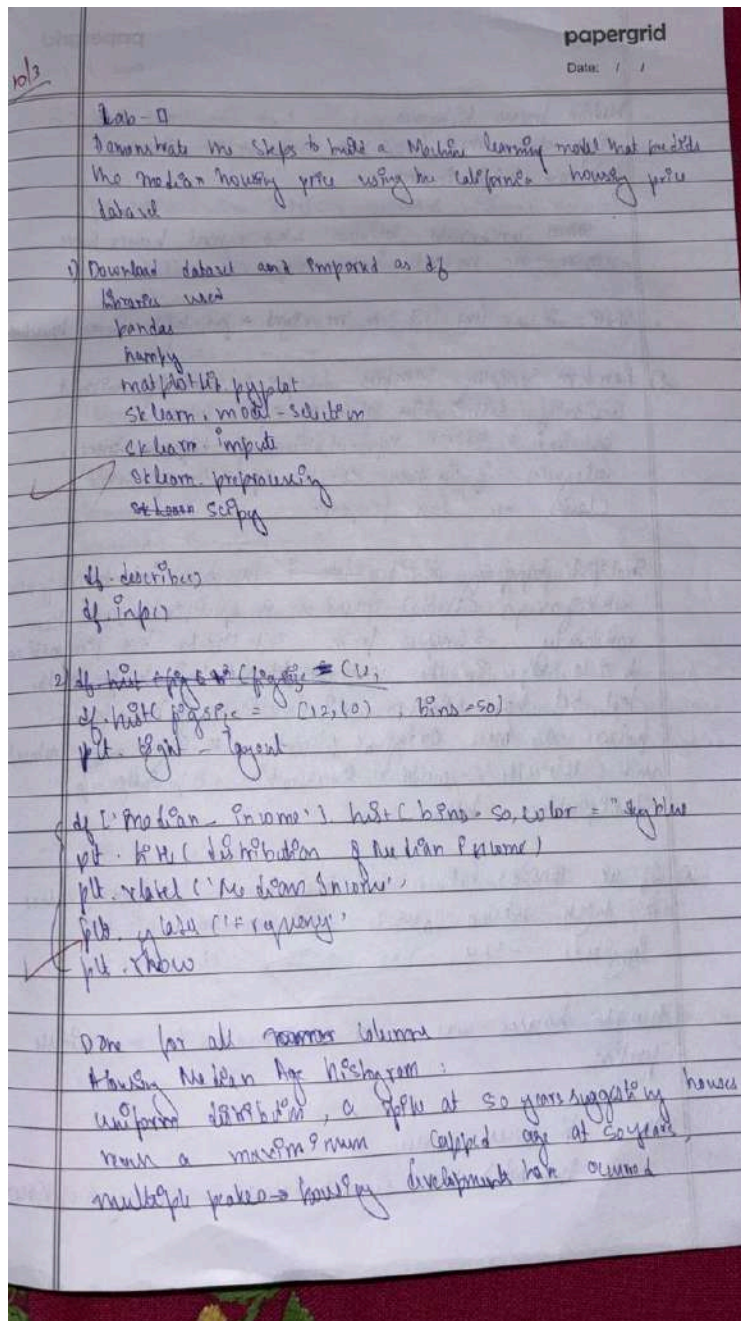 papergrid
Date: / /
10/3
Lab - 0
Demonstrate the steps to build a Machine learning model that predicts
the median housing price using the California housing price
dataset
1) Download dataset and imported as df
libraries used
pandas
numpy
matplotlib. pyplot
sklearn. model-selection
sklearn. impute
sklearn. preprocessing
sklearn scipy
df. describe()
df. info()
2) df. hist (figsize = (12,
df. hist( figsize = (12,10) , bins=50)
plt tight - layout
df ['median - income'] . hist( bins = 50, color = "sky blue
plt . title ( distribution of Median income)
plt. xlabel ('Median Income'
plt. ylabel ('Frequency'
plt . show
Done for all columns
Housing Median Age histogram :
uniform distribution, a spike at 50 years suggesting houses
reach a maximum capped age at 50 years,
multiple peaks → housing developments have occurred